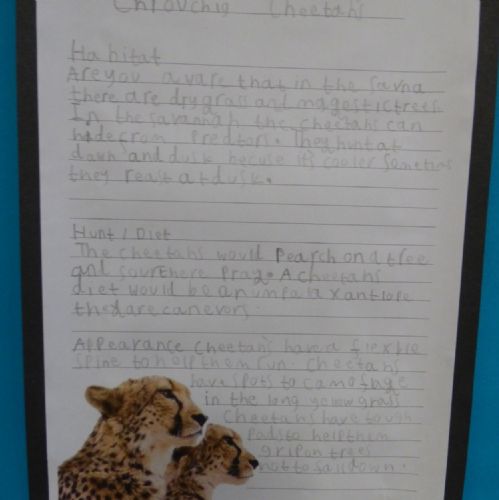 Cheetahs
Habitat
Are you aware that in the savna
there are dry grass and magestic trees
In the savannah the cheetahs can
hide from Predtors. They hunt at
dawn and dusk becuse its cooler Sometims
they reast at dusk.
Hunt / Diet
The cheetahs would Pearch on a tree
and sour there pray. A cheetahs
diet would be an impala x antlope
they are canevors.
Appearance Cheetahs have a flexble
spine to help them run. Cheetahs
have spots to camoflage
in the long yelow grass
Cheetahs have tough
Pads to help them
grip on trees
not to fall down.